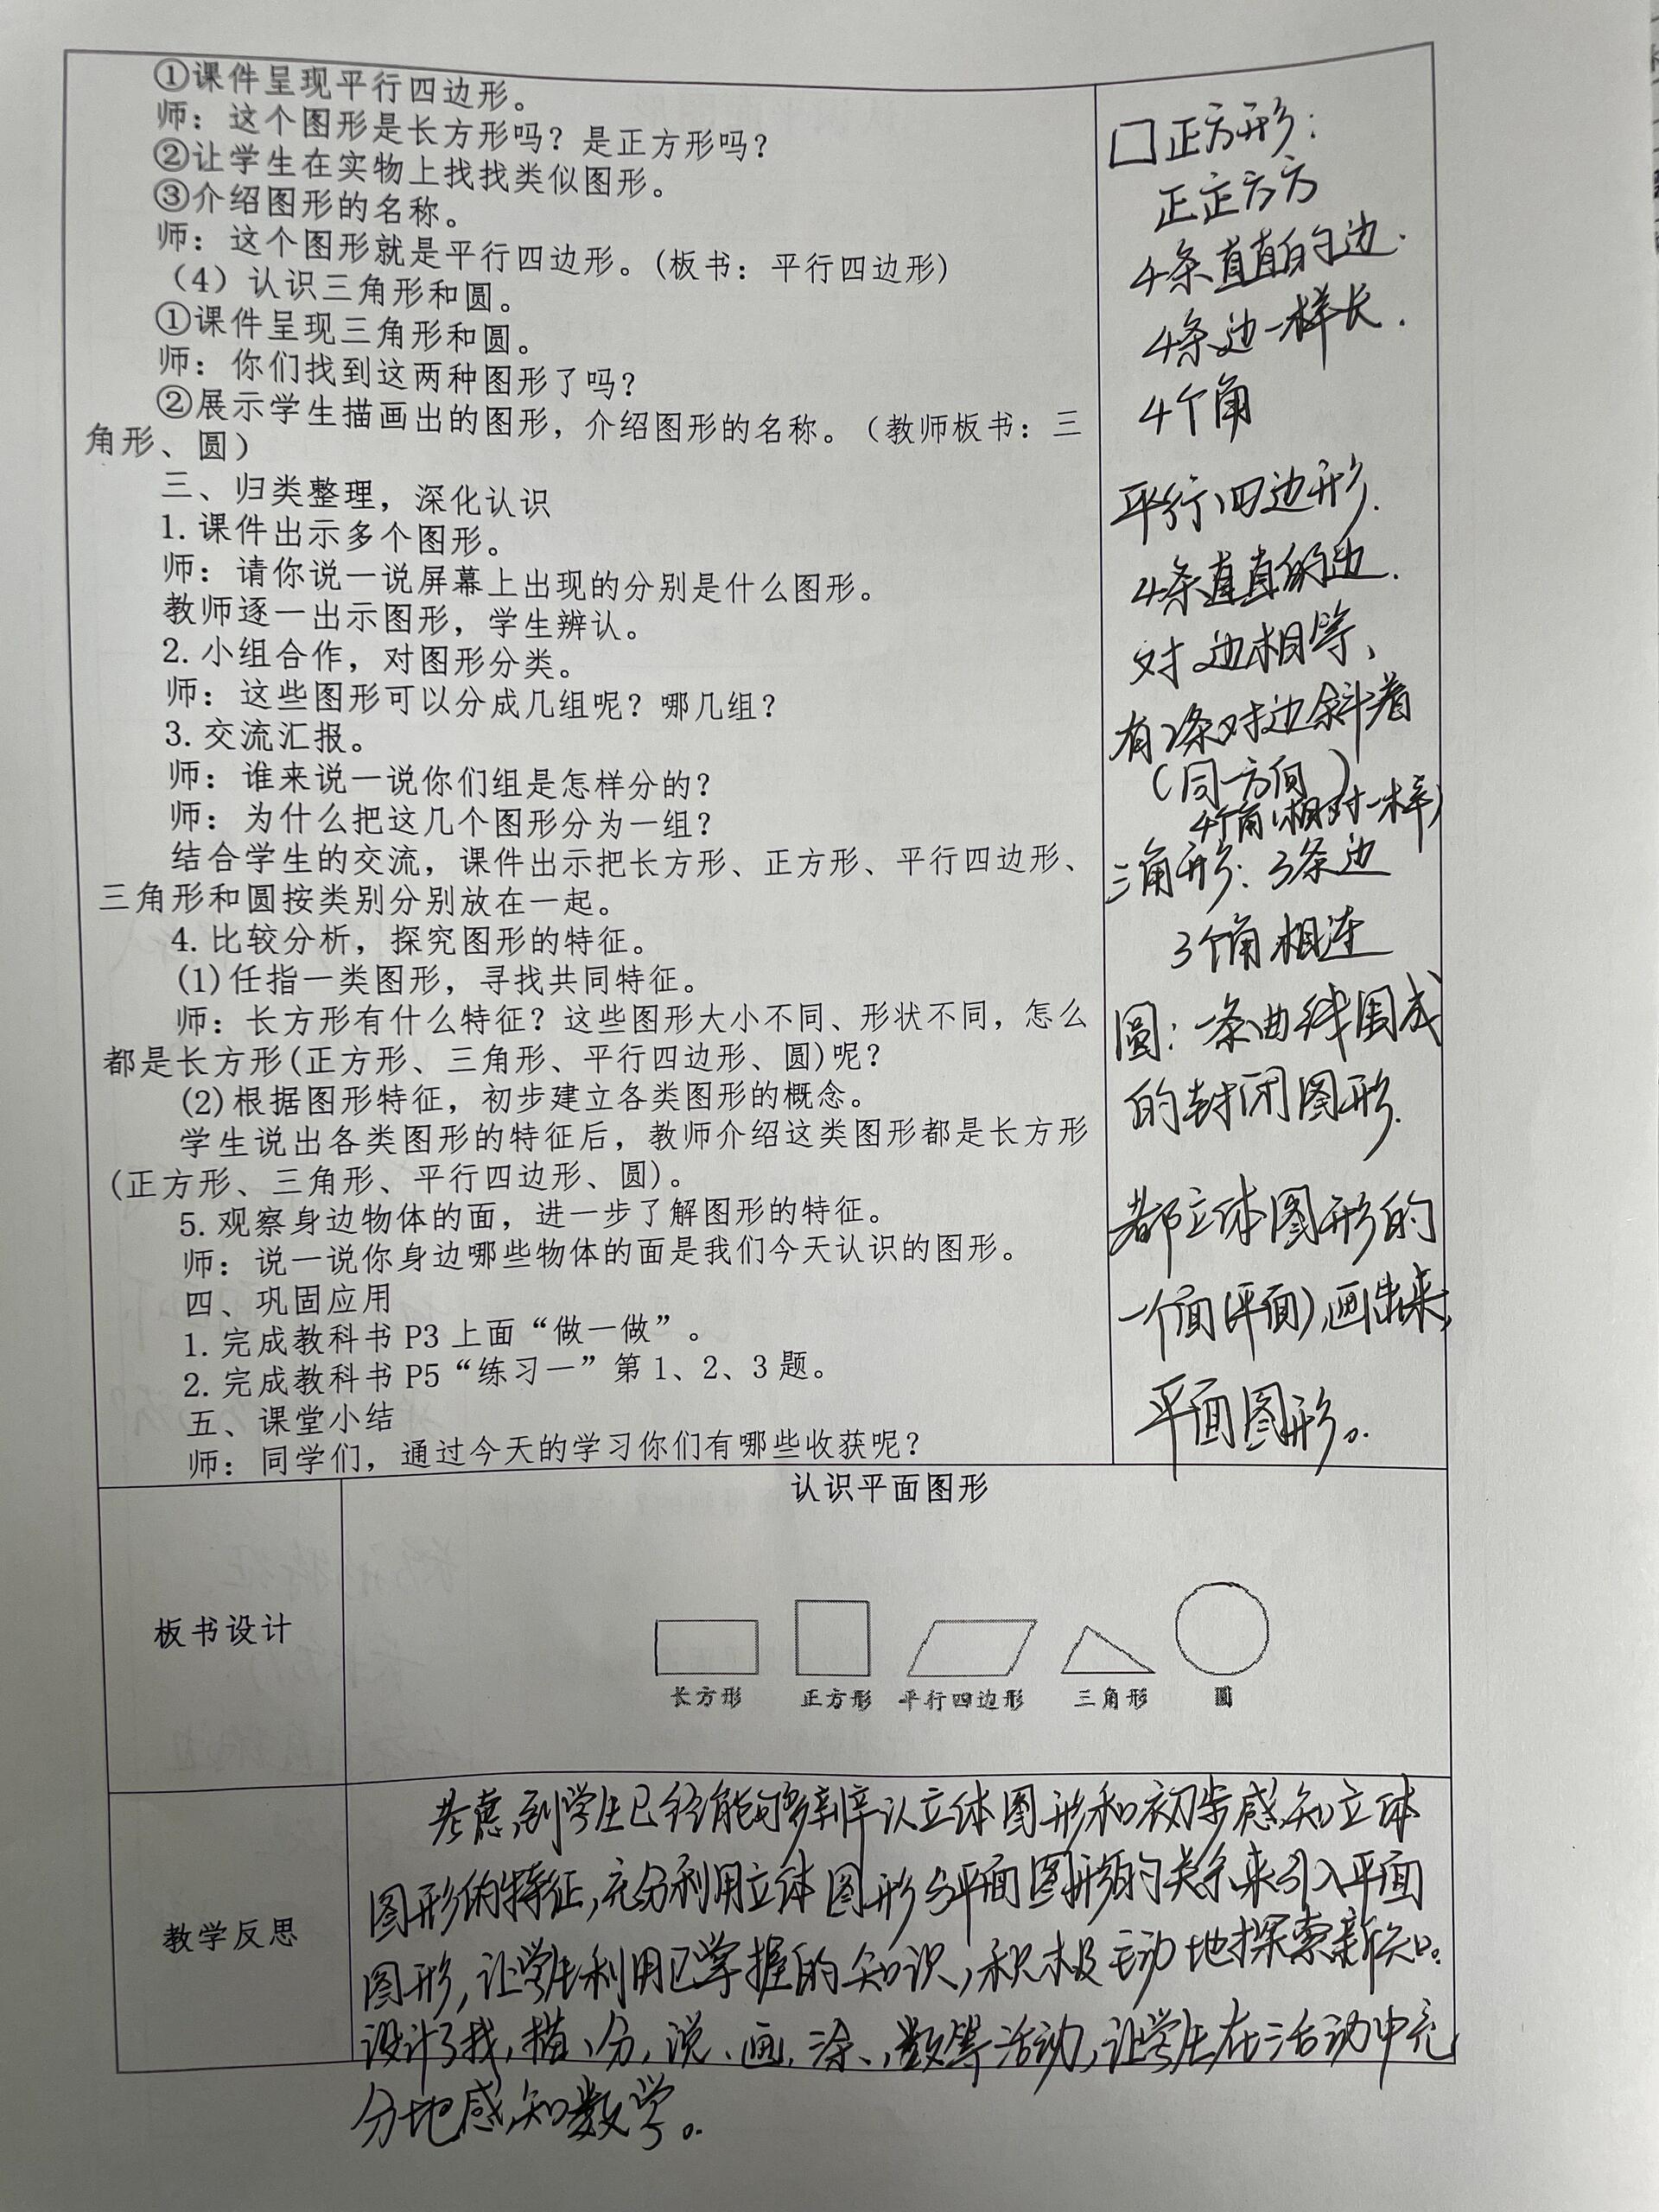 ①课件呈现平行四边形。
师：这个图形是长方形吗？是正方形吗？
②让学生在实物上找找类似图形。
③介绍图形的名称。
师：这个图形就是平行四边形。(板书：平行四边形)
（4）认识三角形和圆。
①课件呈现三角形和圆。
师：你们找到这两种图形了吗？
②展示学生描画出的图形，介绍图形的名称。（教师板书：三
角形、圆）
三、归类整理，深化认识
1.课件出示多个图形。
师：请你说一说屏幕上出现的分别是什么图形。
教师逐一出示图形，学生辨认。
2.小组合作，对图形分类。
师：这些图形可以分成几组呢？哪几组？
3.交流汇报。
师：谁来说一说你们组是怎样分的？
师：为什么把这几个图形分为一组？
结合学生的交流，课件出示把长方形、正方形、平行四边形、
三角形和圆按类别分别放在一起。
4.比较分析，探究图形的特征。
(1)任指一类图形，寻找共同特征。
师：长方形有什么特征？这些图形大小不同、形状不同，怎么
都是长方形(正方形、三角形、平行四边形、圆)呢？
(2)根据图形特征，初步建立各类图形的概念。
学生说出各类图形的特征后，教师介绍这类图形都是长方形
(正方形、三角形、平行四边形、圆)。
5.观察身边物体的面，进一步了解图形的特征。
师：说一说你身边哪些物体的面是我们今天认识的图形。
四、巩固应用
1.完成教科书 P3 上面“做一做”。
2.完成教科书 P5“练习一”第 1、2、3 题。
五、课堂小结
师：同学们，通过今天的学习你们有哪些收获呢？
正方形：
正正方方
4条直直的边.
4条边一样长.
4个角
平行四边形.
4条直直的边.
对边相等、
有2条对边斜着
(同一方向)
4个角(相对一样)
三角形：3条边
3个角相连
圆：一条曲线围成
的封闭图形.
都立体图形的
一个面(平面),画出来,
平面图形。
认识平面图形
板书设计
长方形 正方形 平行四边形 三角形 圆
教学反思
考虑到学生已经能够辨认立体图形和初步感知立体
图形的特征,充分利用立体图形与平面图形的关系来引入平面
图形,让学生利用已掌握的知识,积极主动地探索新知。
设计了找,描、分,说、画,涂、数等活动,让学生在活动中充
分地感知数学。